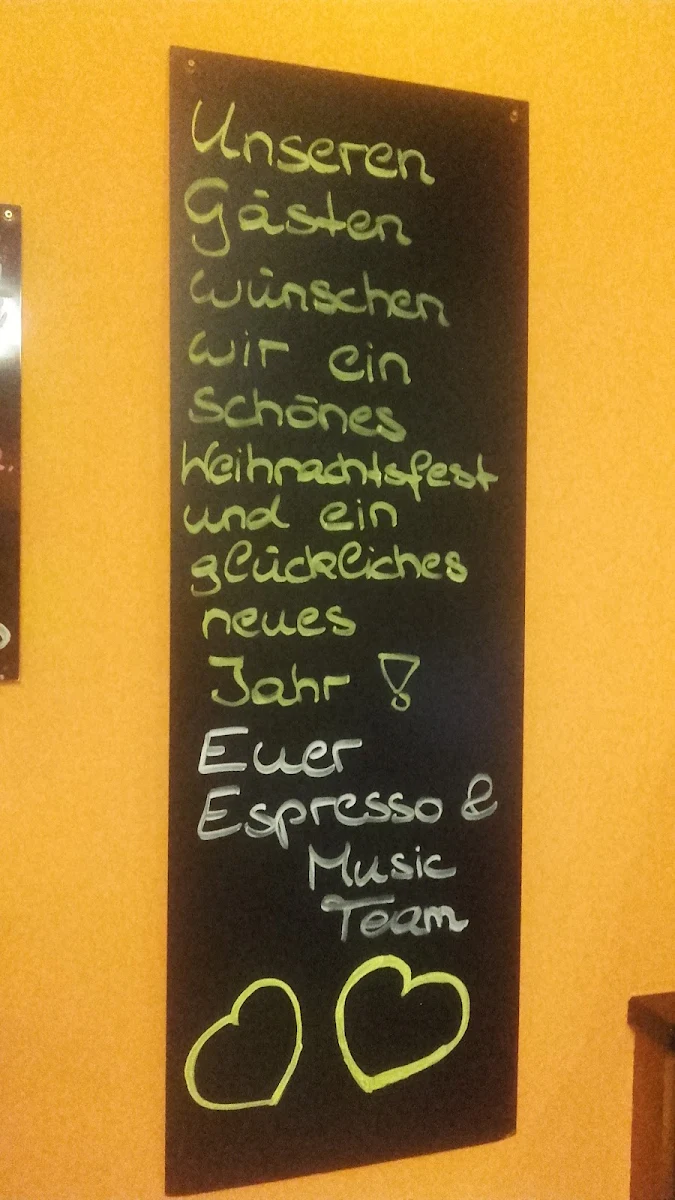 Unseren
Gästen
wünschen
wir ein
schönes
Weihnachtsfest
und ein
glückliches
neues
Jahr !
Euer
Espresso &
Music
Team